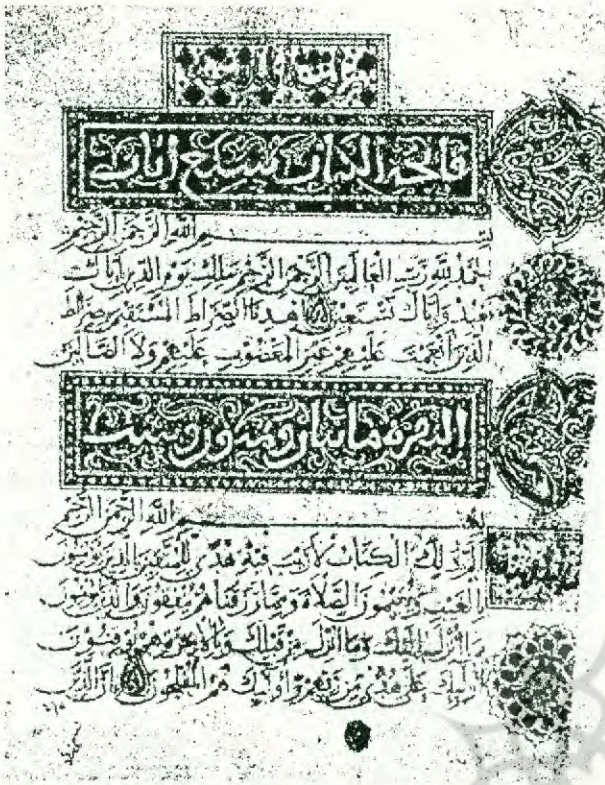 فاتحة الكتاب سبع ايات
بسم الله الرَّحمٰن الرَّحيم
الحمد لله ربّ العالمين الرَّحمن الرَّحيم مالك يوم الدين اياك
نعبد واياك نستعين اهدنا الصِّراط المستقيم صراط
الذين انعمت عليهم غير المغضوب عليهم ولا الضالين
البقرة مايتان وست
بسم الله الرَّحمٰن الرَّحيم
الم ذلك الكتاب لا ريب فيه هدًى للمتقين الذين يومنون
بالغيب ويقيمون الصَّلاة وممّا رزقناهم ينفقون والذين يومنون
بما انزل اليك وما انزل من قبلك وبالاخرة هم يوقنون
اوليك على هدًى من ربهم واوليك هم المفلحون ان الذين